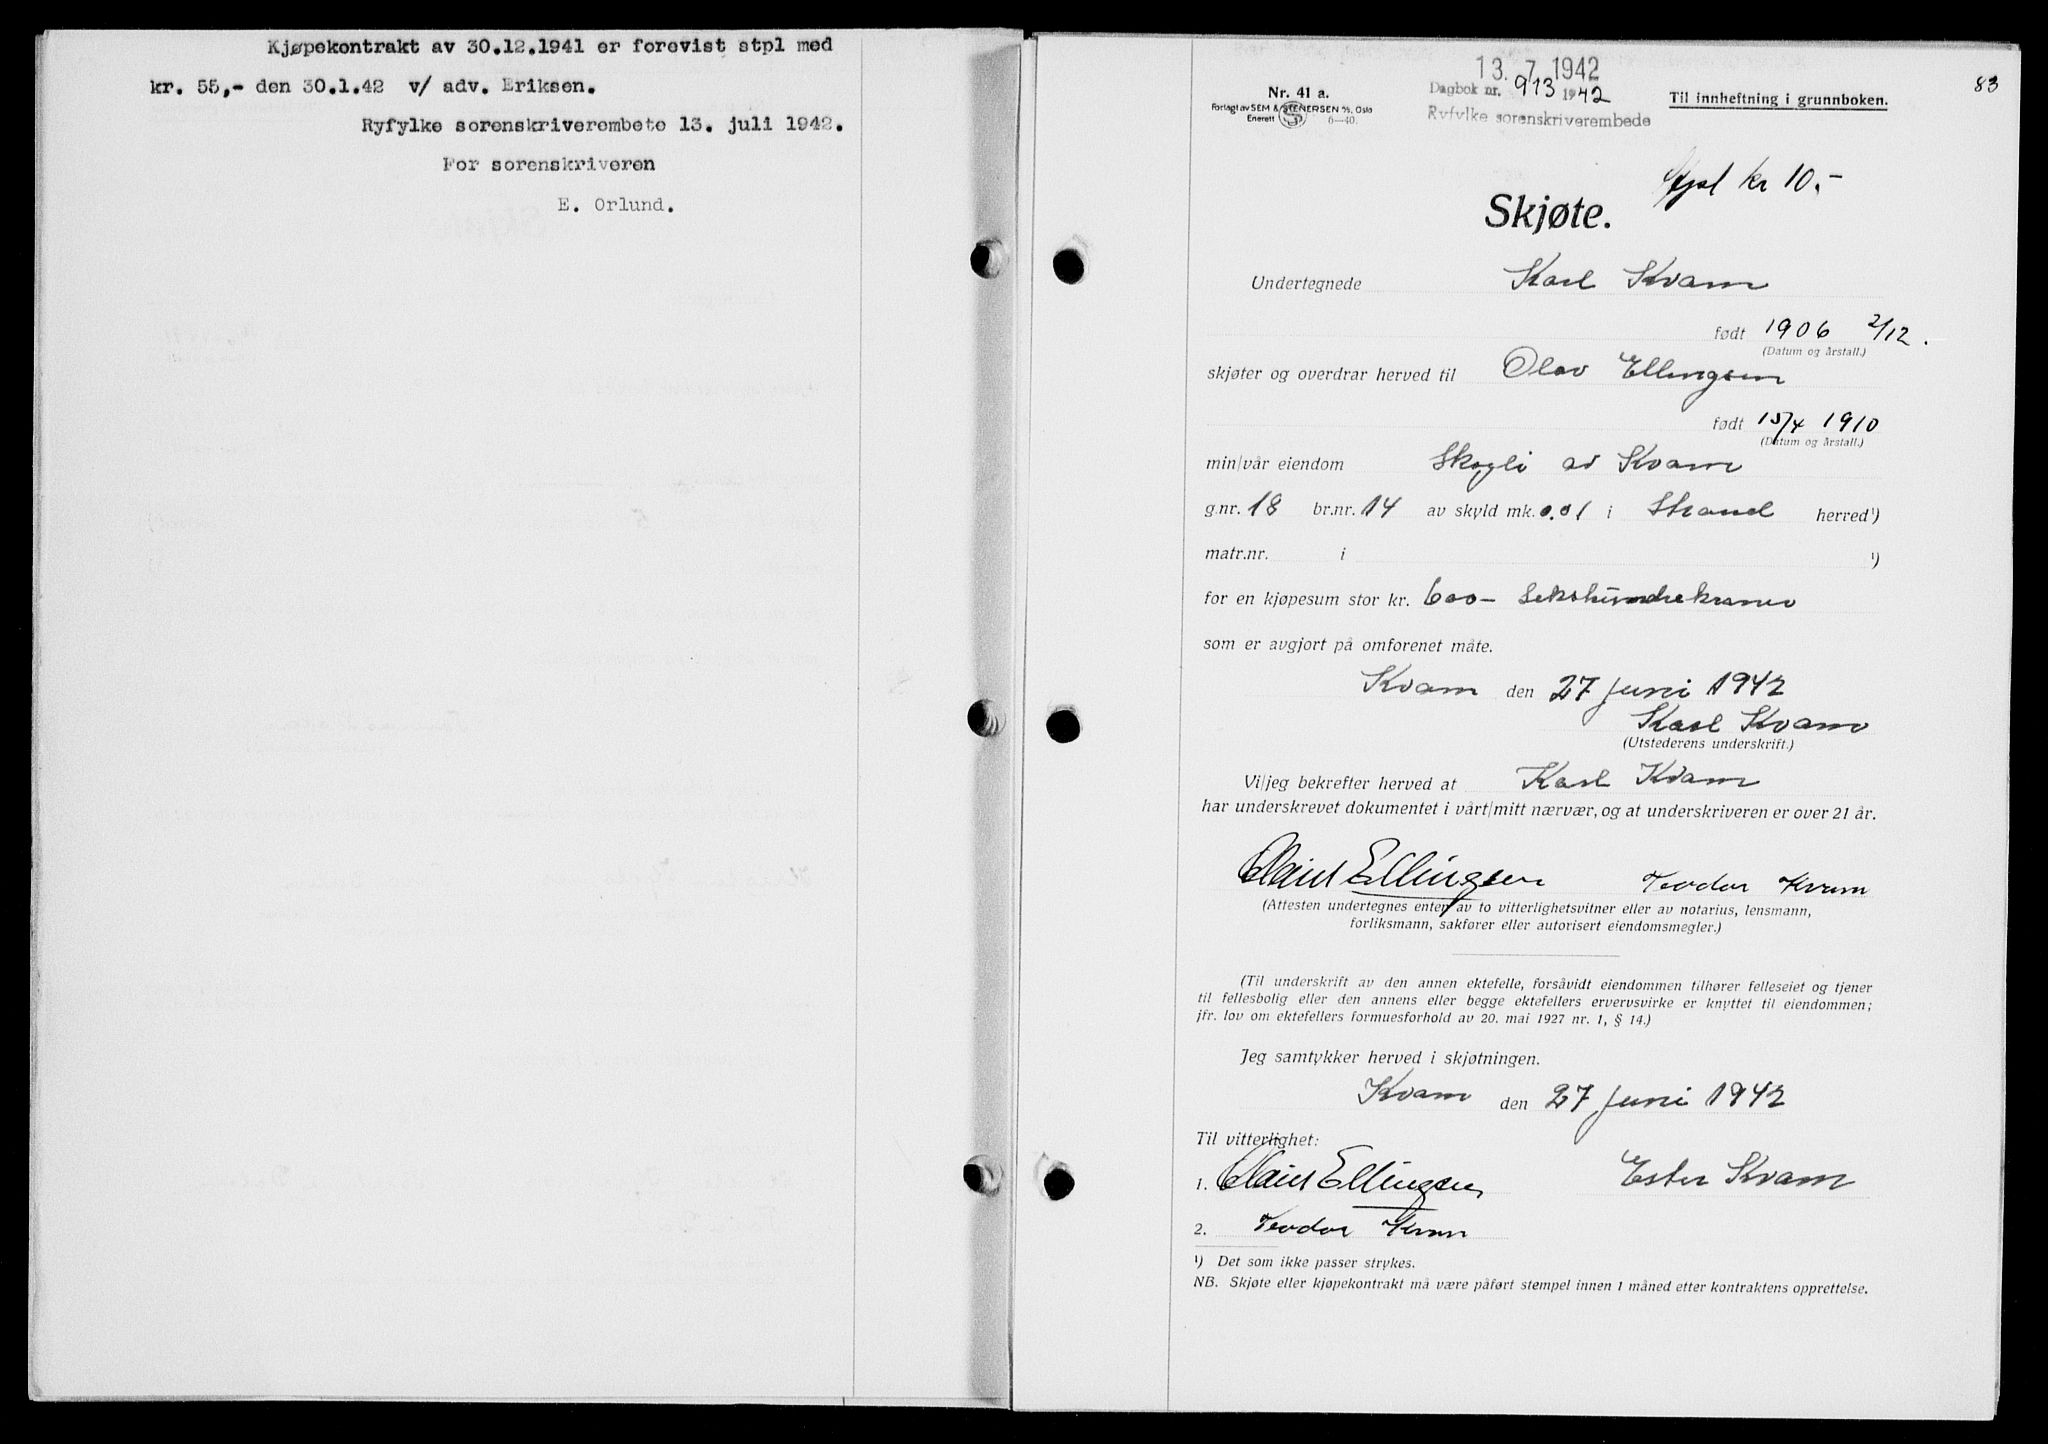 Kjøpekontrakt av 30.12.1941 er forevist stpl med
kr. 55,- den 30.1.42 v/ adv. Eriksen.
Ryfylke sorenskriverembete 13. juli 1942.
For sorenskriveren
E. Orlund.
83
13. 7 1942
Nr. 41 a.
Dagbok nr. 913 1942
Til innheftning i grunnboken.
Forlagt av SEM & STENERSEN A/S, Oslo
Enerett S 6—40.
Ryfylke sorenskriverembede
Stpl kr 10.-
Skjøte.
Undertegnede Karl Kvam
født 1906 2/12.
(Datum og årstall.)
skjøter og overdrar herved til Olav Ellingsen
født 15/4 1910
(Datum og årstall.)
min/vår eiendom Skogli av Kvam
g.nr. 18 br.nr. 14 av skyld mk. 0.01 i Strand herred¹)
matr.nr. i ¹)
for en kjøpesum stor kr. 600- Sekshundrekroner
som er avgjort på omforenet måte.
Kvam den 27 juni 1942
Karl Kvam
(Utstederens underskrift.)
Vi/jeg bekrefter herved at Karl Kvam
har underskrevet dokumentet i vårt/mitt nærvær, og at underskriveren er over 21 år.
Ellingsen Teodor Kvam
(Attesten undertegnes enten av to vitterlighetsvitner eller av notarius, lensmann,
forliksmann, sakfører eller autorisert eiendomsmegler.)
(Til underskrift av den annen ektefelle, forsåvidt eiendommen tilhører felleseiet og tjener
til fellesbolig eller den annens eller begge ektefellers ervervsvirke er knyttet til eiendommen;
jfr. lov om ektefellers formuesforhold av 20. mai 1927 nr. 1, § 14.)
Jeg samtykker herved i skjøtningen.
Kvam den 27 juni 1942
Til vitterlighet:
1. Ellingsen Ester Kvam
2. Teodor Kvam
¹) Det som ikke passer strykes.
NB. Skjøte eller kjøpekontrakt må være påført stempel innen 1 måned etter kontraktens opprettelse.